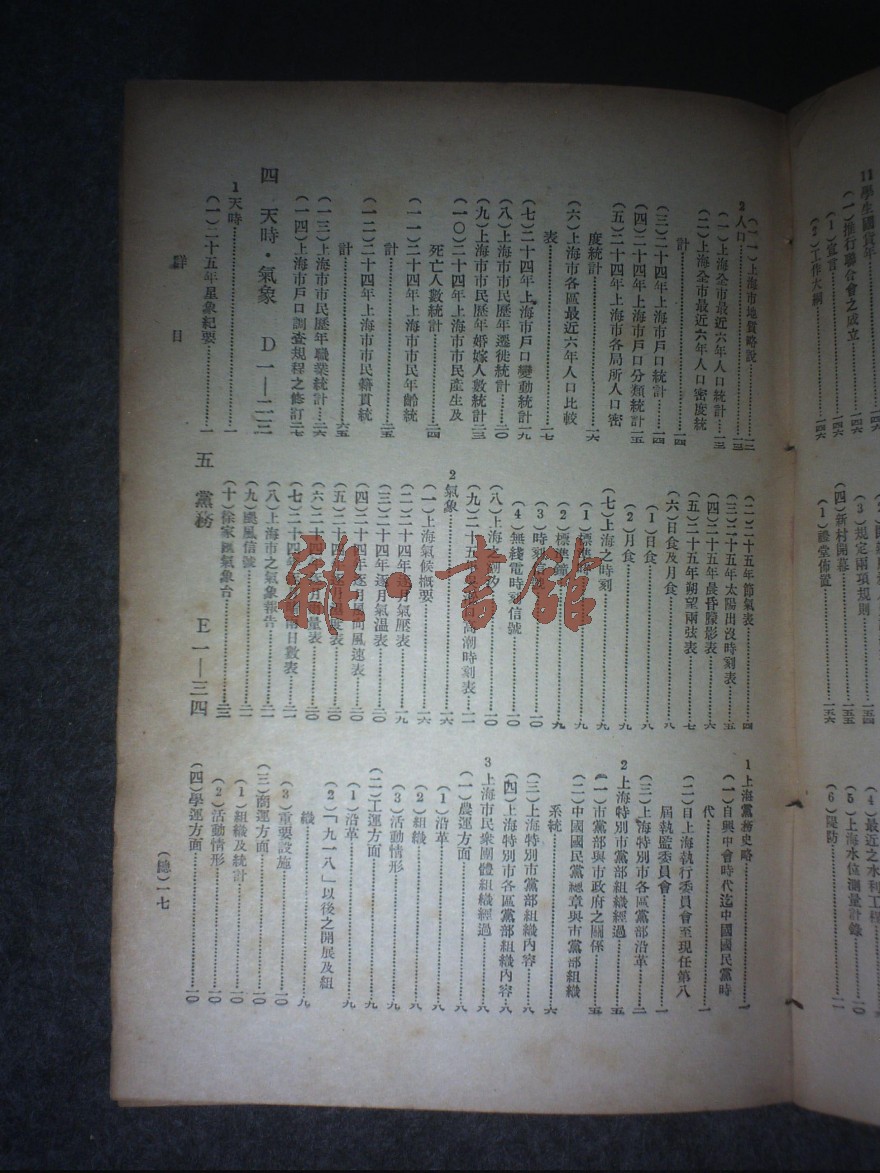 11學生國貨年
(一)推行聯合會之成立……一四六
(1)宣言……一四六
(2)工作大綱……一四六
(3)規定兩項規則……一五四
(四)新村開幕……一五五
(1)禮堂佈置……一五六
(4)最近之水利工程
(5)上海水位測量計錄……一〇
(6)隄防……一一
(一一)上海市地質略說……一二
2人口……一三
(一)上海全市最近六年人口統計……一三
(二)上海全市最近六年人口密度統
計……一四
(三)二十四年上海市戶口統計……一四
(四)二十四年上海市戶口分類統計一五
(五)二十四年上海市各局所人口密
度統計……一六
(六)上海市各區最近六年人口比較
表……一七
(七)二十四年上海市戶口變動統計一九
(八)上海市市民歷年遷徙統計……二〇
(九)上海市市民歷年婚嫁人數統計二三
(一〇)二十四年上海市市民產生及
死亡人數統計……二四
(一一)二十四年上海市市民年齡統
計……二五
(一二)二十四年上海市市民籍貫統
計……六五
(一三)上海市市民歷年職業統計……二六
(一四)上海市戶口調查規程之修訂二七
四 天時·氣象 D一—二三
1天時……一
(一)二十五年星象紀要……一
(二)二十五年節氣表……四
(三)二十五年太陽出沒時刻表……五
(四)二十五年晨昏矇影表……六
(五)二十五年朔望兩弦表……七
(六)日食及月食……八
(1)日食……八
(2)月食……九
(七)上海之時刻……九
(1)標準時……九
(2)標準鐘……九
(3)時刻……一〇
(4)無綫電時刻信號……一〇
(八)上海之潮汐……一〇
(九)二十五年……高潮時刻表……一一
2氣象……一六
(一)上海氣候概要……一六
(二)二十四年逐月氣壓表……一九
(三)二十四年逐月氣温表……二〇
(四)二十四年逐月風向風速表……二〇
(五)二十四年逐月溼度表……二〇
(六)二十四年逐月雨量表……二〇
(七)二十四年……日數表……二一
(八)上海市之氣象報告……二一
(九)颶風信號……二一
(十)徐家匯氣象台……二三
五 黨務 E一—三四
1上海黨務史略……一
(一)自興中會時代迄中國國民黨時
代……一
(二)自上海執行委員會至現任第八
屆執監委員會……一
(三)上海特別市各區黨部沿革……二
2上海特別市黨部組織經過……五
(一)市黨部與市政府之關係……五
(二)中國國民黨總章與市黨部組織
系統……六
(三)上海特別市黨部組織內容……八
(四)上海特別市各區黨部組織內容……八
3上海市民衆團體組織經過……八
(一)農運方面……八
(1)沿革……八
(2)組織……八
(3)活動情形……九
(二)工運方面……九
(1)沿革……九
(2)「九一八」以後之開展及組
織……九
(3)重要設施……一〇
(三)商運方面……一〇
(1)組織及統計……一〇
(2)活動情形……一〇
(四)學運方面……一〇
詳目
(總)一七
雜·書館